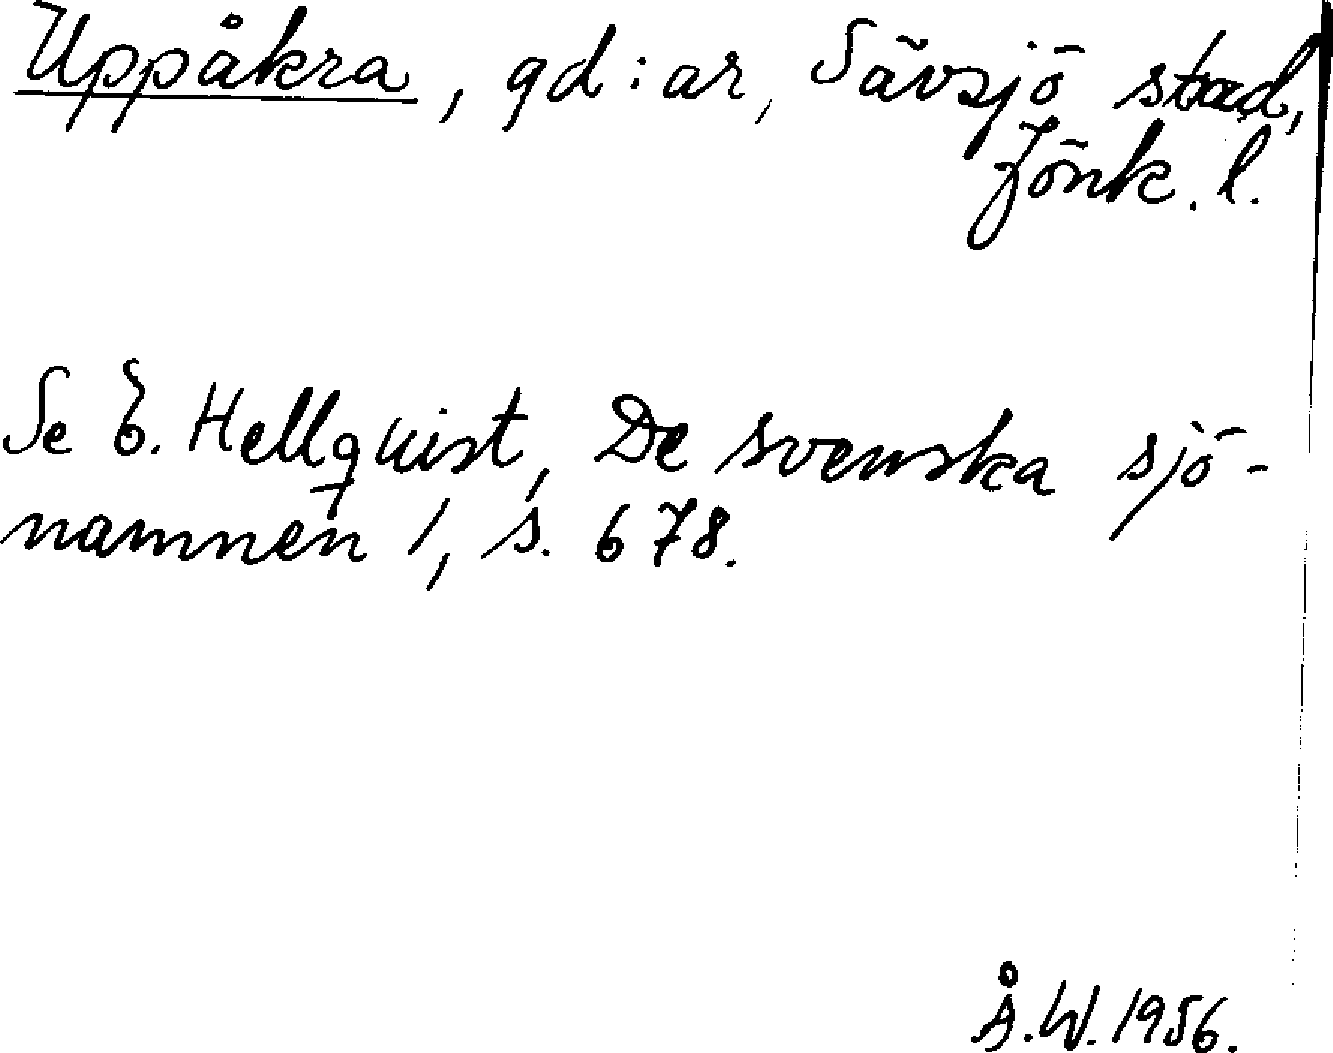 Uppåkra, gd:ar, Sävsjö stad,
Jönk. l.
Se E. Hellquist, De svenska sjö-
namnen 1, s. 678.
Å.W. 1956.